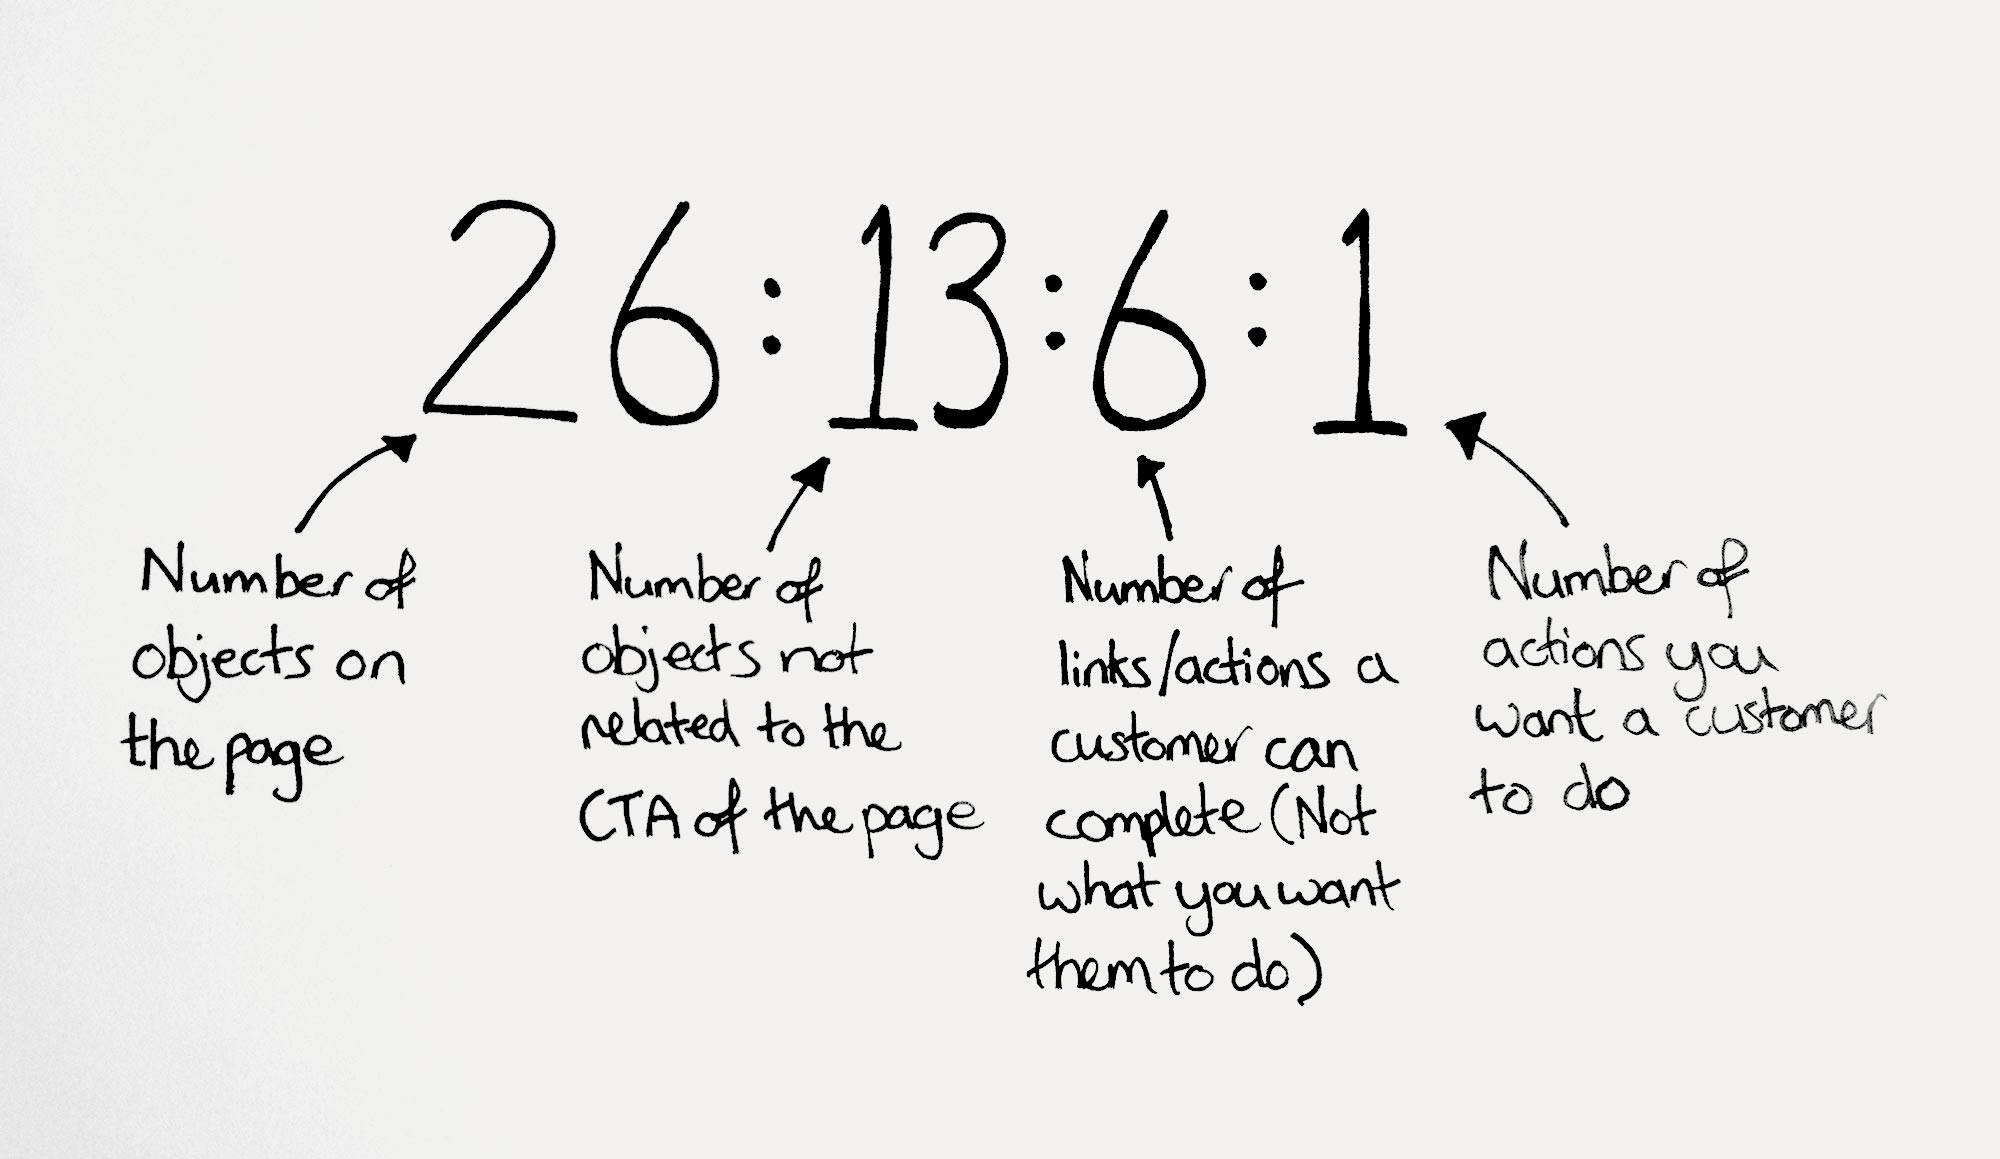 26:13:6:1
Number of
objects on
the page
Number of
objects not
related to the
CTA of the page
Number of
links/actions a
customer can
complete (Not
what you want
them to do)
Number of
actions you
want a customer
to do